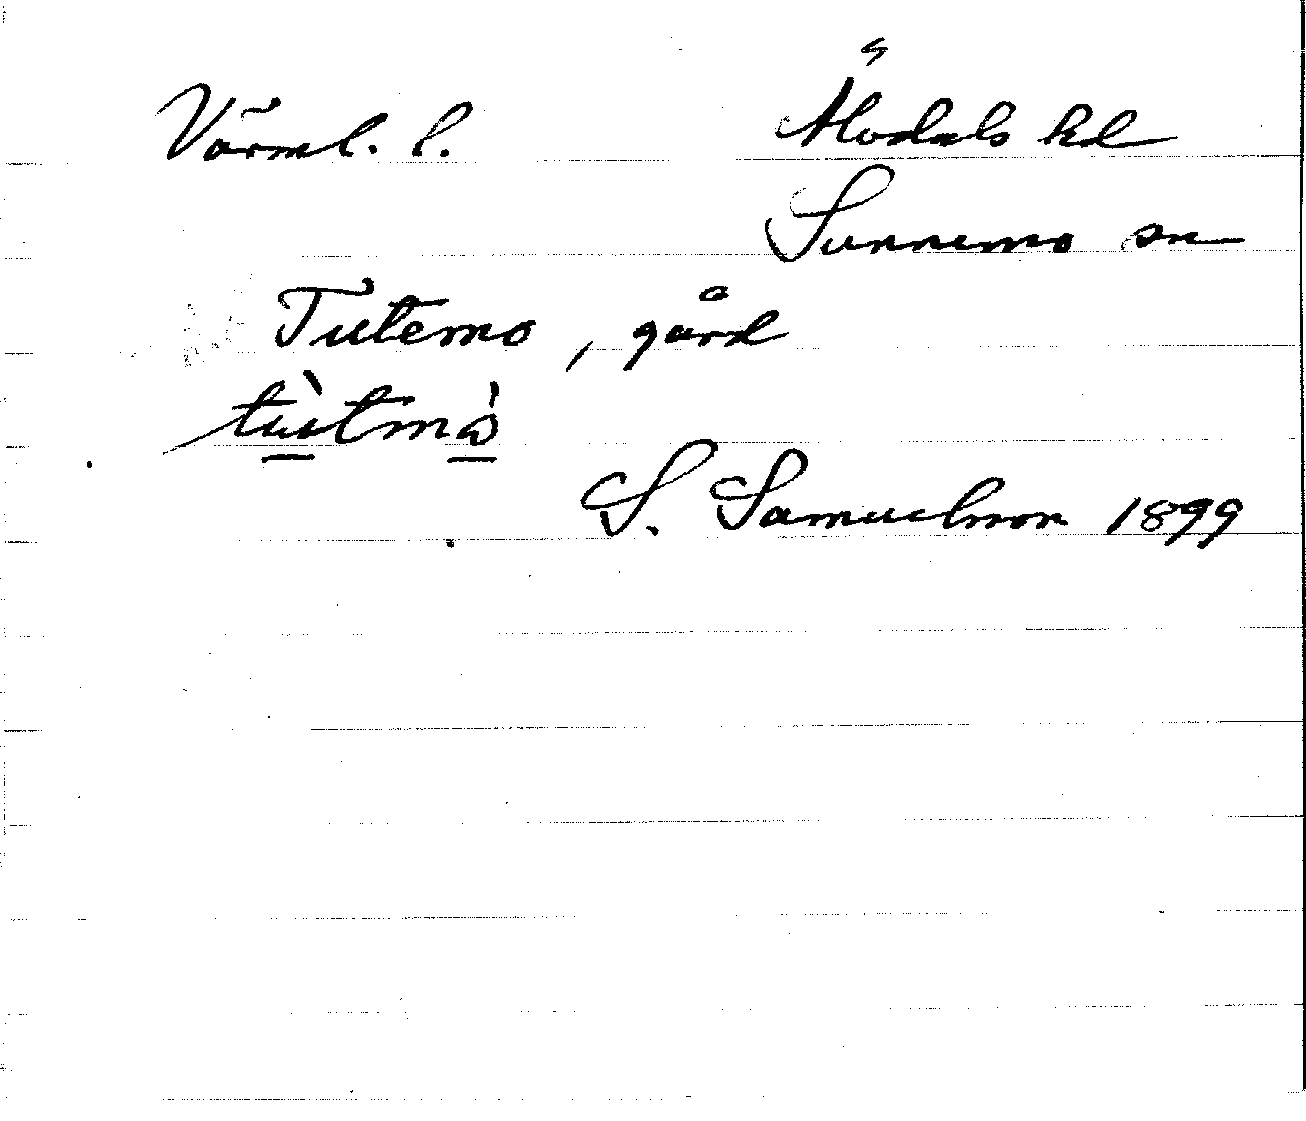 Värml. l. Älvdals hd
Sunnemo sn
Tutemo, gård
S. Samuelsson 1899